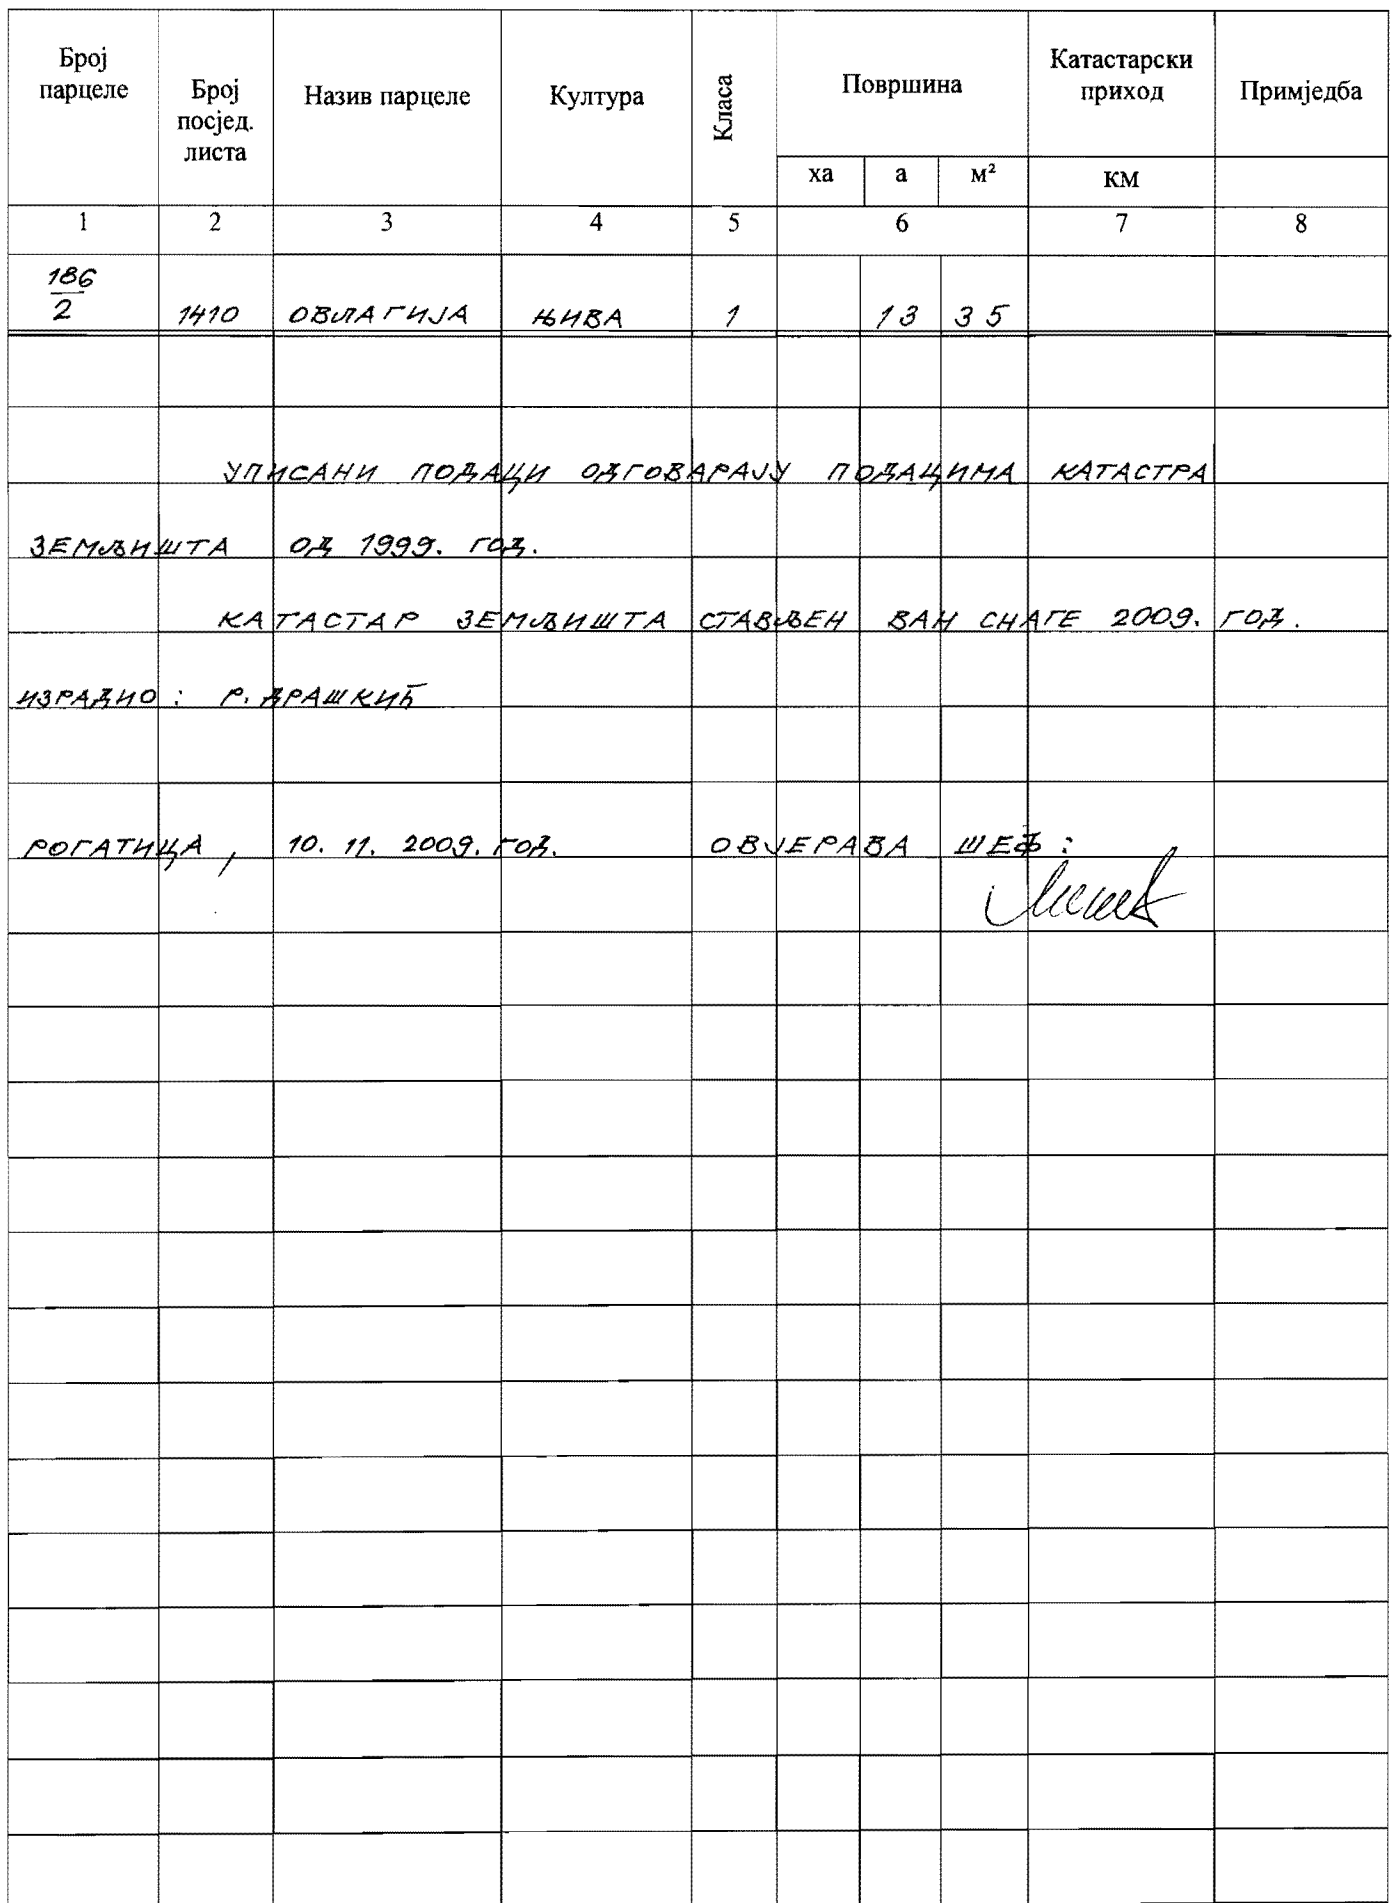 Број парцеле
Број посјед. листа
Назив парцеле
Култура
Класа
Површина
Катастарски приход
Примједба
ха а м² КМ
1 2 3 4 5 6 7 8
186/2 1410 ОВЛАГИЈА ЊИВА 1 13 35
УПИСАНИ ПОДАЦИ ОДГОВАРАЈУ ПОДАЦИМА КАТАСТРА
ЗЕМЉИШТА ОД 1999. ГОД.
КАТАСТАР ЗЕМЉИШТА СТАВЉЕН ВАН СНАГЕ 2009. ГОД.
ИЗРАДИО : Р. ДРАШКИЋ
РОГАТИЦА , 10. 11. 2009. ГОД. ОВЈЕРАВА ШЕФ :